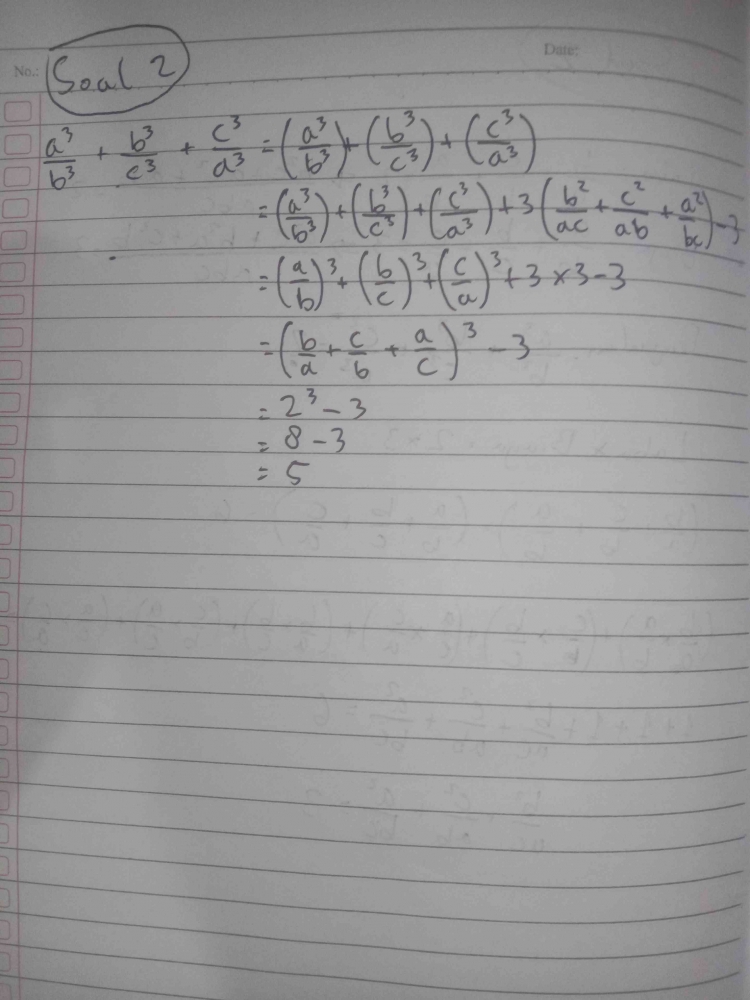 No.: Soal 2 Date:
a³/b³ + b³/c³ + c³/a³ = (a³/b³) + (b³/c³) + (c³/a³)
= (a³/b³) + (b³/c³) + (c³/a³) + 3 (b²/ac + c²/ab + a²/bc) - 3
= (a/b)³ + (b/c)³ + (c/a)³ + 3 × 3 - 3
= (b/a + c/b + a/c)³ - 3
= 2³ - 3
= 8 - 3
= 5